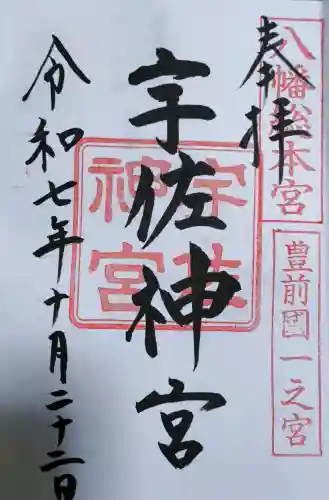 奉拝
八幡総本宮
豊前國一之宮
宇佐神宮
宇佐神宮
令和七年十月二十二日